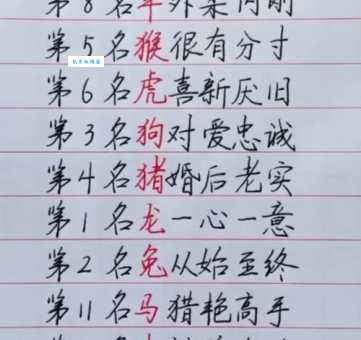 第5名猴很有分寸
第6名虎喜新厌旧
第3名狗对爱忠诚
第4名猪婚后老实
第1名龙一心一意
第2名兔从始至终
第11名马猎艳高手